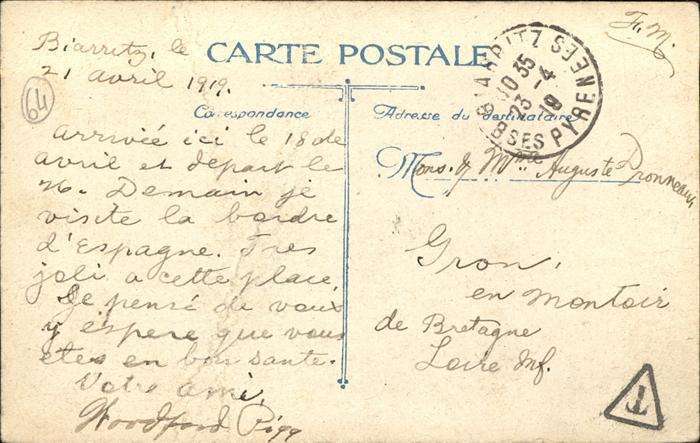 F.M.
CARTE POSTALE
Biarritz, le
21 avril 1919.
64
Correspondance
Adresse du destinataire
BIARRITZ
10 35
23 - 4
19
BSES PYRENEES
arrivée ici le 18 de
avril et depart le
26. Demain je
visite la bordre
d'Espagne. Tres
joli a cette place.
Je pensé de vous
y espere que vous
etes en bon sante.
Votre ami,
Woodford Pigg
Mons. & Mme Auguste Pronneaux,
Gron,
en Montoir
de Bretagne
Loire Inf.
T